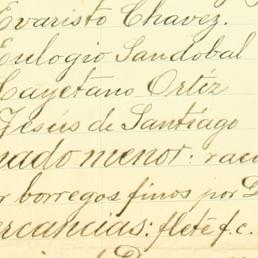 Evaristo Chavez.
Eulogio Sandobal
Cayetano Ortíz
Jesús de Santiago
nado menor. rac
r borregos finos por D
ercancias: flete f.c.